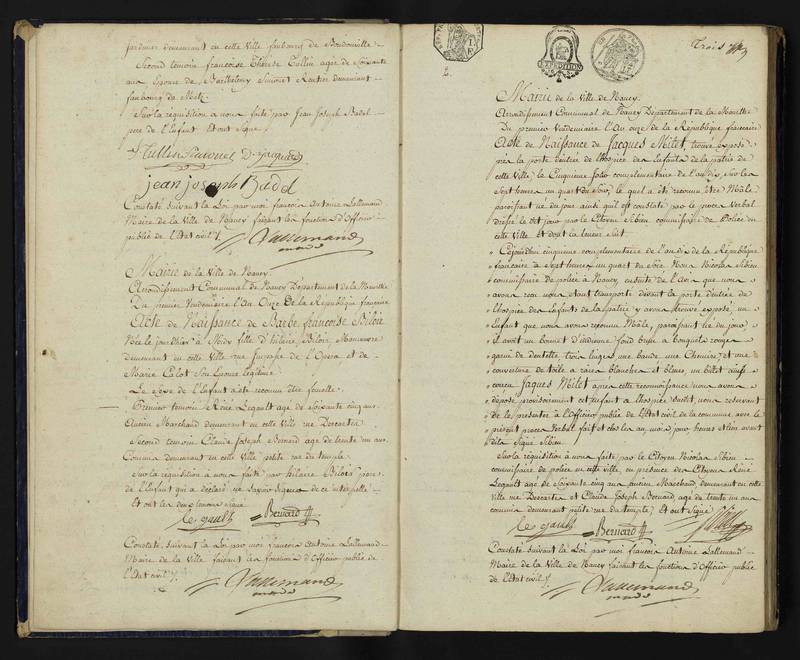 jardinier demeurant en cette Ville faubourg de Boudonville
Second temoin françoise Thérèse Tullin agée de Soixante
ans Epouse de Barthelemy Simonet Rentier demeurant
faubourg de Metz
Sur la requisition a nous faite par Jean Joseph Badel
pere de l'Enfant Et ont Signé
f Tullin Simonet D. Jacquard
jean joseph Badel
Constaté, Suivant la Loi par moi françois Antoine Lallemand
Maire de la Ville de Nancy faisant les fonction d'Officier
public de l'Etat civil ./.
Lallemand
Mairie de la Ville de Nancy.
Arrondissement Communal de Nancy Département de la Meurthe
Du premier Vendemiaire l'An Onze de la République francaise
Acte de Naissance de Barbe, françoise Biloix
Née le jourd'hier à Midy fille d'hilaire Biloix, Manœuvre
demeurant en cette Ville rue
de l'Opera et de
Marie Calot Son Epouse legitime
Le Sexe de l'Enfant a été reconnu être femelle
Premier temoin, Réné Legault agé de Soixante cinq ans
Ancien Marchand demeurant en cette Ville rue Descartes
Second temoin Claude Joseph Bernard agé de trente un ans
Commis demeurant en cette Ville petite rue du temple
Sur la réquisition à nous faite par hilaire Biloix pere
de l'Enfant qui a déclaré ne Savoir Signer de ce interpellé
Et ont les deux temoins signé
Le gault Bernard
Constaté, Suivant la Loi par moi françois Antoine Lallemand
Maire de la Ville faisant les fonctions d'Officier public de
l'Etat civil ./.
Lallemand
2.
EXPEDITIONS
Trois
Mairie de la Ville de Nancy.
Arrondissement Communal de Nancy Département de la Meurthe
Du premier Vendemiaire l'An onze de la République francaise
Acte de Naissance de Jacques Milet, trouvé exposé
près la porte d'entrée de l'hospice des Enfants de la patrie de
cette Ville, le Cinquieme jour complementaire de l'an dix, Sur les
Sept heures un quart du Soir, lequel a été reconnu être Mâle
paroissant né du jour ainsi qu'il est constaté par le procès Verbal
dressé le dit jour par le Citoyen Sibien, commissaire de Police en
cette Ville et dont la teneur Suit
Cejourd'hui cinquieme complementaire de l'an dix de la République
francaise à Sept heures un quart du Soir Nous Nicolas Sibien
commissaire de police à Nancy, ensuite de l'Avis que nous
avons reçu nous étant transporté devant la porte d'entrée de
l'hospice des Enfants de la patrie y avons trouvé exposé, un
Enfant que nous avons reconnu Mâle, paroissant né du jour,
il avoit un bonet d'indienne fond brun à bouquets rouges
garni de dentelle, trois langes une bande une Chemise, et une
couverture de toile à raies blanches et bleues, un billet ainsi
conçu Jaques Milet, après cette reconnoissance nous avons
déposé provisoirement cet Enfant à l'hospice Susdit, nous reservant
de le presenter à l'Officier public de l'Etat civil de la commune avec le
présent procès Verbal, fait et clos les an, mois jour heures et lieu avant
dits Signé Sibien
Sur la réquisition à nous faite par le Citoyen Nicolas Sibien
commissaire de police en cette ville, en présence des Citoyens Réné
Legault agé de Soixante cinq ans, ancien Marchand, demeurant en cette
ville rue Descartes et Claude Joseph Bernard, agé de trente un ans
commis demeurant petite rue du temple, et ont Signé
Le gault Bernard
Constaté Suivant la Loi par moi françois Antoine Lallemand
Maire de la Ville de Nancy faisant les fonctions d'Officier public
de l'Etat civil ./.
Lallemand